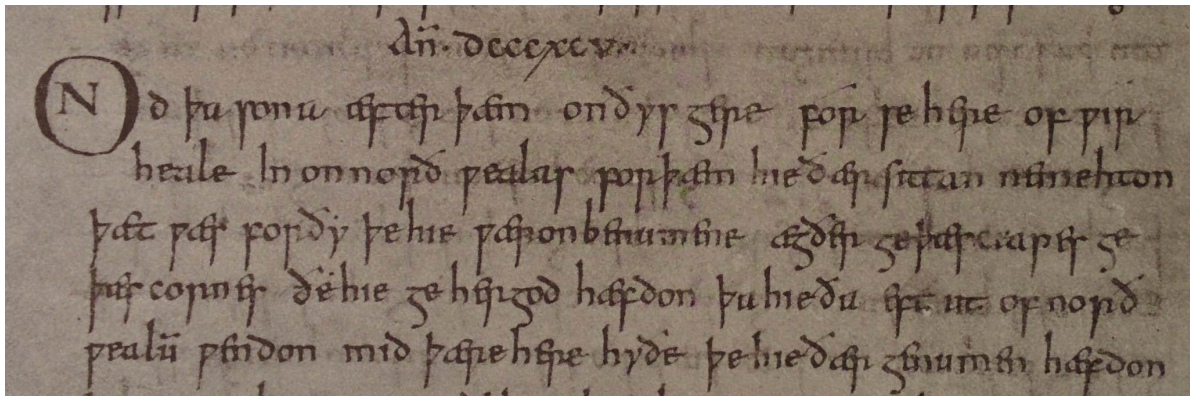 An̄. dcccxcv.
OND þa sona æfter þæm ondys gere for se here of wir
heale In onnorð wealas forþæm hie ðær sittan nemehton
þæt wæs forðy þe hie wæron benumene ægðer ge þæs ceapes ge
þæs cornes ðe hie gehergod hæfdon þa hie ða eft ut of norð
wealū wendon mid þære here hyðe þe hie ðær genumen hæfdon